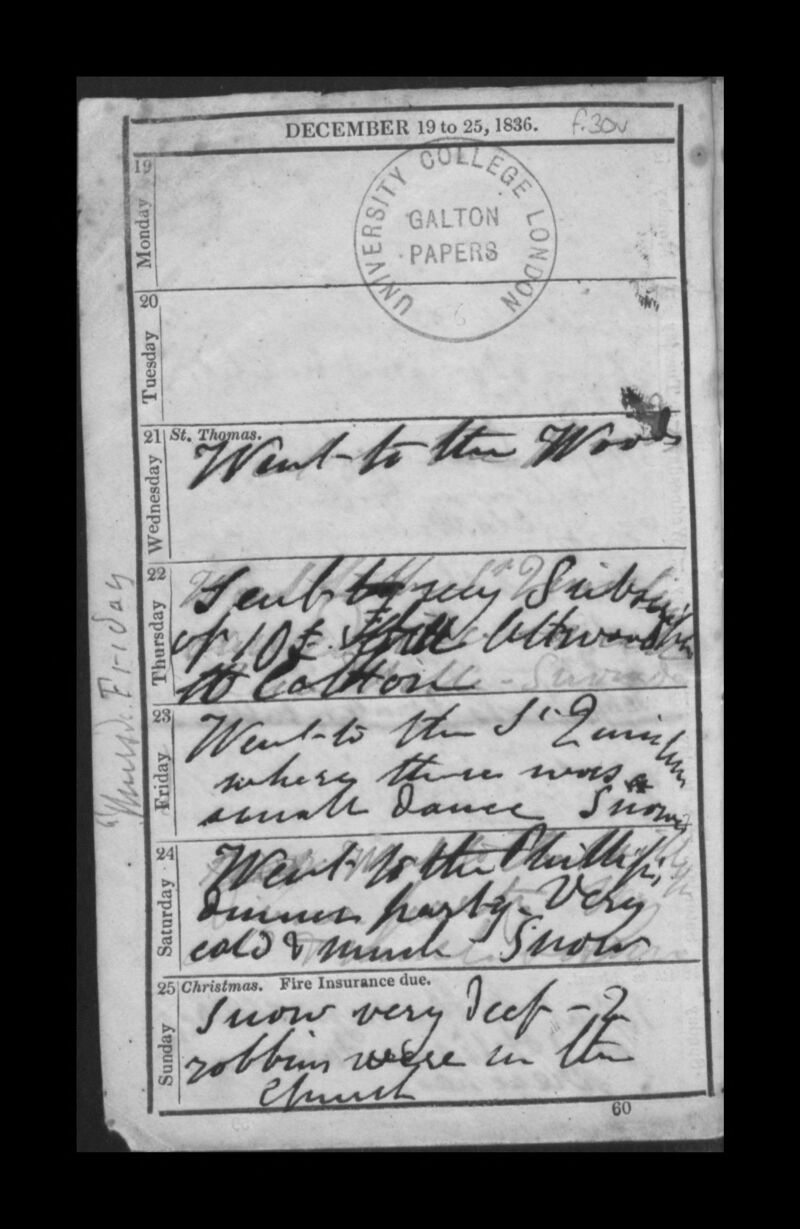 DECEMBER 19 to 25, 1836. f.30v
UNIVERSITY COLLEGE LONDON
GALTON
PAPERS
19 Monday
20 Tuesday
21 Wednesday
St. Thomas.
Went to the Woods
22 Thursday
Sent
of 10£ Attwood
Colthorn
23 Friday
Went to the St Quintins
where there was a
small dance Snow
24 Saturday
Went to the Phillips
dinner party. Very
cold & much Snow
25 Sunday
Christmas. Fire Insurance due.
Snow very deep - 2
robbins were in the
Church
Friday
60